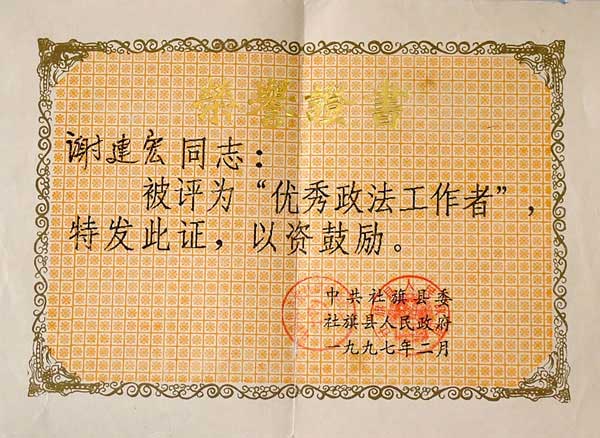 榮譽證書
谢建宏同志：
被评为“优秀政法工作者”，
特发此证，以资鼓励。
中共社旗县委
社旗县人民政府
一九九七年二月